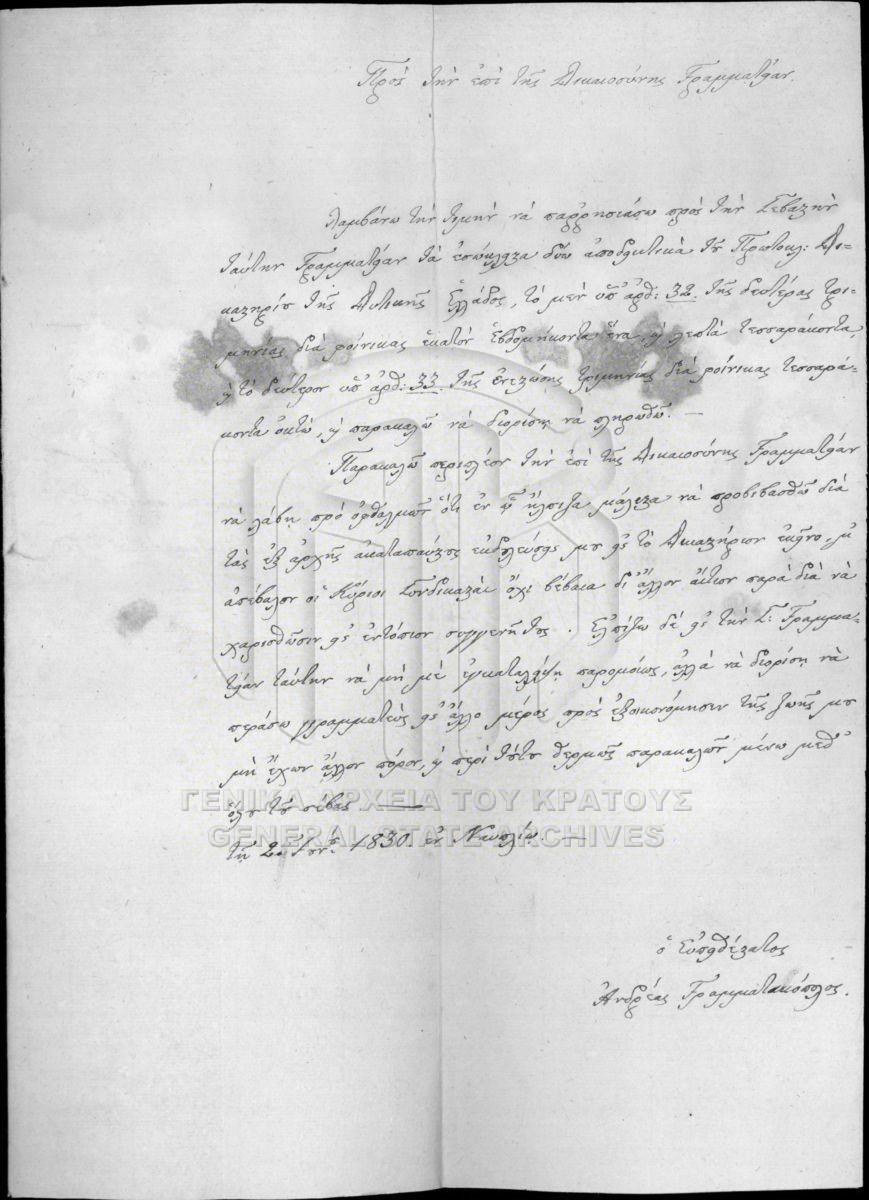 Πρὸς τὴν ἐπὶ τῆς Δικαιοσύνης Γραμματείαν.
Λαμβάνω τὴν τιμὴν νὰ παῤῥησιάσω πρὸς τὴν Σεβαστὴν
ταύτην Γραμματείαν τὰ ἐσώκλειστα δύω ἀποδεικτικὰ τοῦ Πρωτοκλ: Δι-
καστηρίου τῆς Δυτικῆς Ἑλλάδος, τὸ μὲν ὑπ' ἀρθ: 32. τῆς δευτέρας τρι-
μηνίας διὰ φοίνικας ἑκατὸν ἑβδομήκοντα ἕνα, ϗ λεπτὰ τεσσαράκοντα,
ϗ τὸ δεύτερον ὑπ' ἀρθ: 33. τῆς ἐνεστώσης τριμηνίας διὰ φοίνικας τεσσαρά-
κοντα ὀκτὼ, ϗ παρακαλῶ νὰ διορίσῃ νὰ πληρωθῶ. —
Παρακαλῶ περιπλέον τὴν ἐπὶ τῆς Δικαιοσύνης Γραμματείαν
νὰ λάβῃ πρὸ ὀφθαλμῶν ὅτι ἐν ᾧ ἤλπιζα μάλιστα νὰ προβιβασθῶ διὰ
τὰς ἐξ ἀρχῆς ἀκαταπαύστους ἐκδουλεύσεις μου εἰς τὸ Δικαστήριον ἐκεῖνο, μ'
ἀπέβαλον οἱ Κύριοι Συνδικασταὶ ὄχι βέβαια δι' ἄλλον αἴτιον παρὰ διὰ νὰ
χαρισθῶσιν εἰς ἐντόπιον συγγενῆ τους. Ἐλπίζω δὲ εἰς τὴν Σ: Γραμμα-
τείαν ταύτην νὰ μὴ μὲ ἐγκαταλείψῃ παρομοίως, ἀλλὰ νὰ διορίσῃ νὰ
περάσω γραμματεὺς εἰς ἄλλο μέρος πρὸς ἐξοικονόμησιν τῆς ζωῆς μου
μὴ ἔχων ἄλλον πόρον, ϗ περὶ τούτου θερμῶς παρακαλῶν μένω μεθ'
ὅλου τοῦ σέβας —
ΓΕΝΙΚΑ ΑΡΧΕΙΑ ΤΟΥ ΚΡΑΤΟΥΣ
GENERAL STATE ARCHIVES
1830. ἐν Ναυπλίῳ. —
ὁ Εὐπειθέστατος
Ἀνδρέας Γραμματικόπουλος.